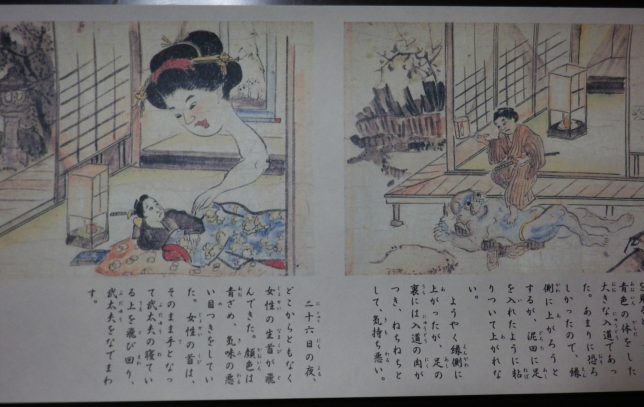 青色の体をした
大きな入道であっ
た。あまりに恐ろ
しかったので、縁
側に上がろうと
するが、泥田に足
を入れたように粘
りついて上がれな
い。
ようやく縁側に
上がったが、足の
裏には入道の肉が
つき、ねちねちと
して、気持ち悪い。
二十六日の夜、
どこからともなく
女性の生首が飛
んできた。顔色は
青ざめ、気味の悪
い目つきをしてい
た。女性の首は、
そのまま手となっ
て武太夫の寝てい
る上を飛び回り、
武太夫をなでまわ
す。